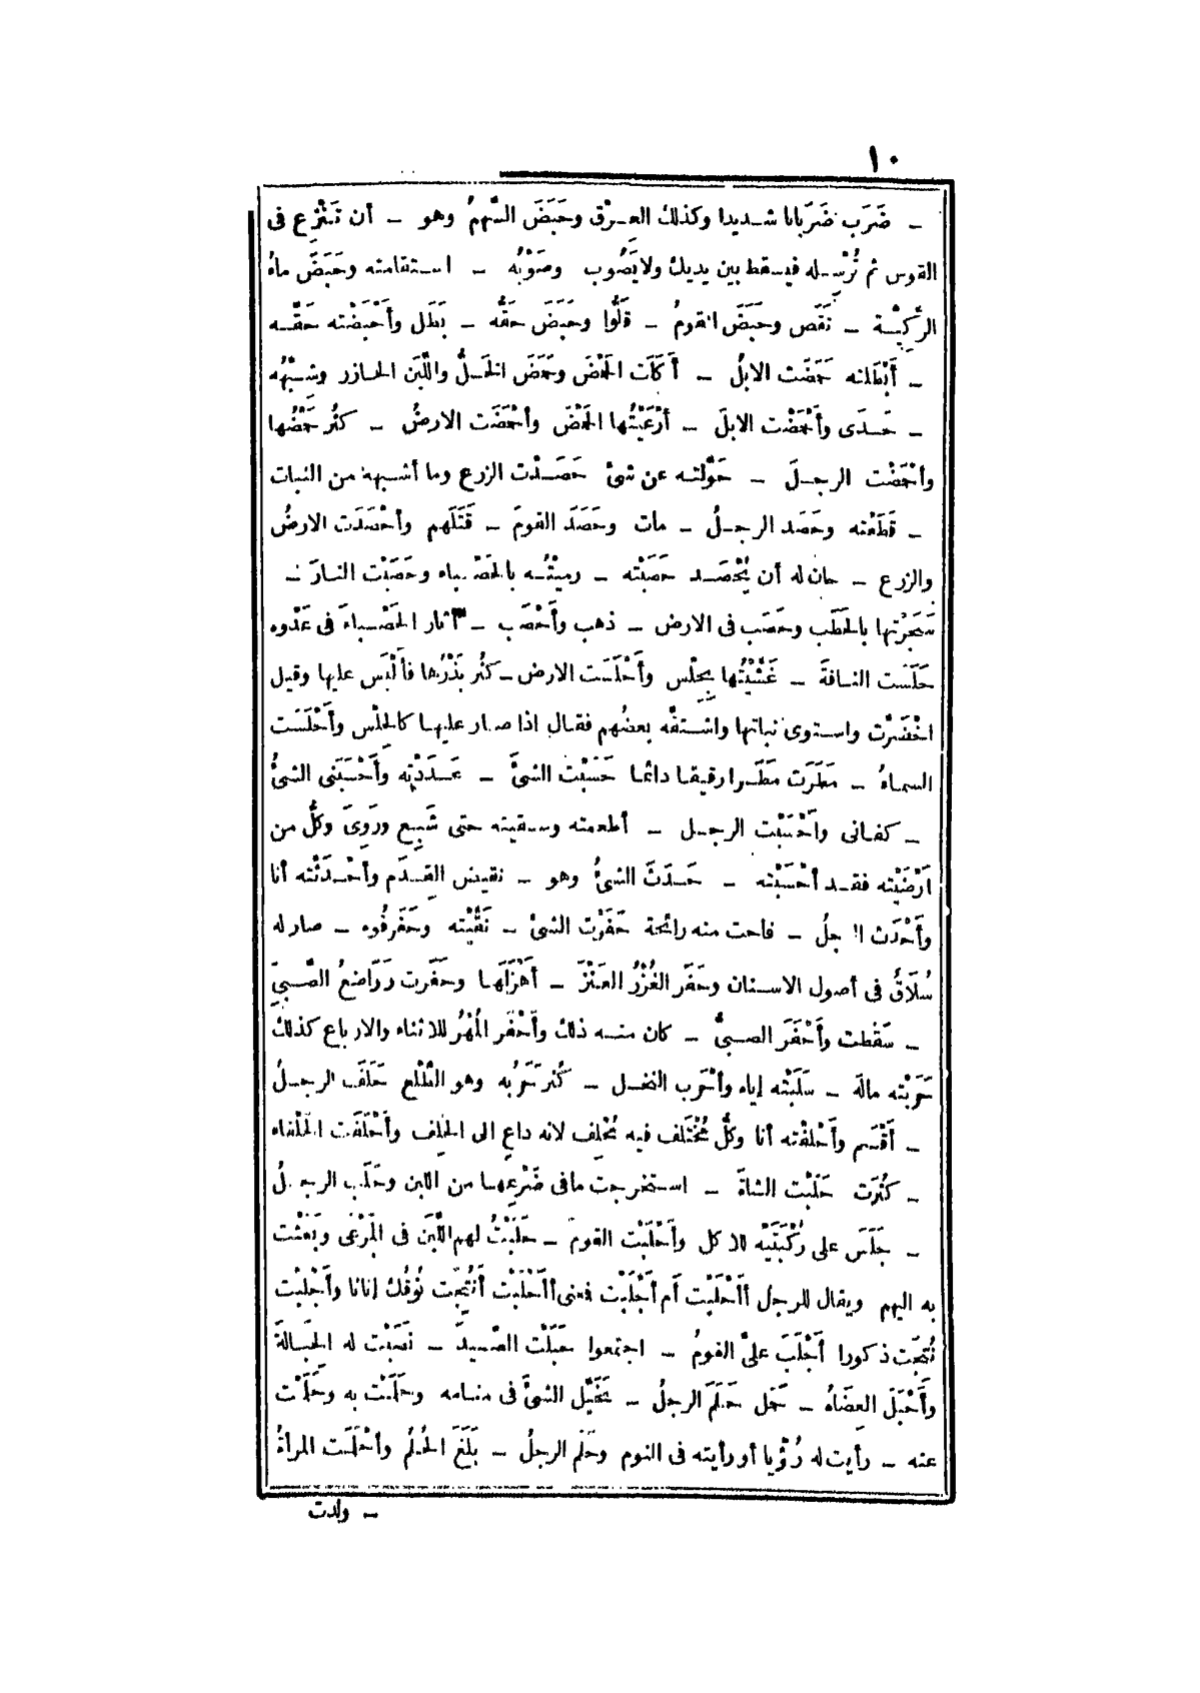 ١٠
ـ ضَرَب ضَرَبانا شديدا وكذلك العِرْق وحَبَضَ السَّهمُ وهو ـ أن تَنْزِع فى
القوس ثم تُرْسِله فيسقط بين يديك ولا يَصُوب وصَوْبُه ـ استقامته وحَبَضَ ماءُ
الرَّكِيَّة ـ نَقَص وحَبَضَ القومُ ـ قَلُّوا وحَبَضَ حَقُّه ـ بَطَل وأَحْبَضْته حَقَّه
ـ أَبْطَلته حَمَضَت الابلُ ـ أَكَلَت الحَمْضَ وحَمَضَ الخَلُّ واللَّبَن الحازر وشِبْهُه
ـ حَذَى وأَحْمَضْت الابلَ ـ أَرْعَيْتُها الحَمْضَ وأَحْمَضَت الارضُ ـ كَثُر حَمْضُها
وأَحْمَضْت الرجلَ ـ حَوَّلته عن شئ حَصَدْت الزرع وما أشبهه من النبات
ـ قَطَعْته وحَصَد الرجلُ ـ مات وحَصَدَ القومَ ـ قَتَلَهم وأَحْصَدَت الارضُ
والزرع ـ حان له أن يُحْصَد حَصَبْته ـ رميْتُه بالحَصْباء وحَصَبْت النارَ ـ
سَجَرْتها بالحَطَب وحَصَب فى الارض ـ ذهب وأَحْصَب ـ أثار الحَصْباءَ فى عَدْوه
حَلَسْت الناقةَ ـ غَشَّيْتُها بِحِلْس وأَحْلَسَت الارض ـ كَثُر بَذْرُها فألْبَس عليها وقيل
اخْضَرَّت واستوى نباتها واشتقَّه بعضُهم فقال اذا صار عليها كالحِلْس وأَحْلَسَت
السماءُ ـ مَطَرَت مَطَرا رقيقا دائما حَسَبْت الشئَ ـ عَدَدْته وأَحْسَبَنى الشئُ
ـ كفانى وأَحْسَبْت الرجل ـ أطعمته وسقيته حتى شَبِع ورَوِىَ وكلُّ من
أَرْضَيْته فقد أحْسَبْته ـ حَدَثَ الشئُ وهو ـ نقيض القِدَم وأحْدَثْته أنا
وأَحْدَث الرجلُ ـ فاحت منه رائحة حَفَرْت الشئ ـ نَقَّيْته وحَفَر فُوه ـ صار له
سُلَاقٌ فى أصول الاسنان وحَفَر الغُزْرُ العَنْزَ ـ أَهْزَلَها وحَفَرت رَوَاضعُ الصَّبىِّ
ـ سَقَطت وأَحْفَرَ الصبىُّ ـ كان منه ذلك وأَحْفَر المُهْرُ للاثناء والارباع كذلك
حَرَبْته مالَه ـ سَلَبْته إياه وأَحْرَب النخل ـ كَثُر حَرَبُه وهو الطَّلْع حَلَفَ الرجلُ
ـ أَقْسَم وأَحْلَفْته أنا وكلُّ مُخْتَلَف فيه مُحْلِف لانه داعٍ الى الحَلِف وأَحْلَفَت الحَلْفاء
ـ كَثُرَت حَلَبْت الشاةَ ـ استخرجت ما فى ضَرْعها من اللبن وحَلَب الرجلُ
ـ جَلَسَ على رُكْبَتَيْه للاكل وأَحْلَبْت القومَ ـ حَلَبْتُ لهم اللَّبَن فى المَرْعَى وبَعَثْت
به اليهم ويقال للرجل أأَحْلَبْت أم أَجْلَبْت فعنى أأحْلَبْت أنُتِجَت نُوقُك إناثا وأَجْلَبْت
نُتِجَت ذكورا أَحْلَبَ علىَّ القومُ ـ اجتمعوا حَبَلْت الصيدَ ـ نَصَبْت له الحِبالةَ
وأَحْبَلَ العِضَاهُ ـ حَمَل حَلَمَ الرجلُ ـ تخَيَّل الشئَ فى منامه وحَلَمْت به وحَلَمْت
عنه ـ رأيت له رُؤْيا أو رأيته فى النوم وحَلَم الرجلُ ـ بَلَغَ الحُلُم وأَحْلَمَت المرأةُ
ـ ولدت